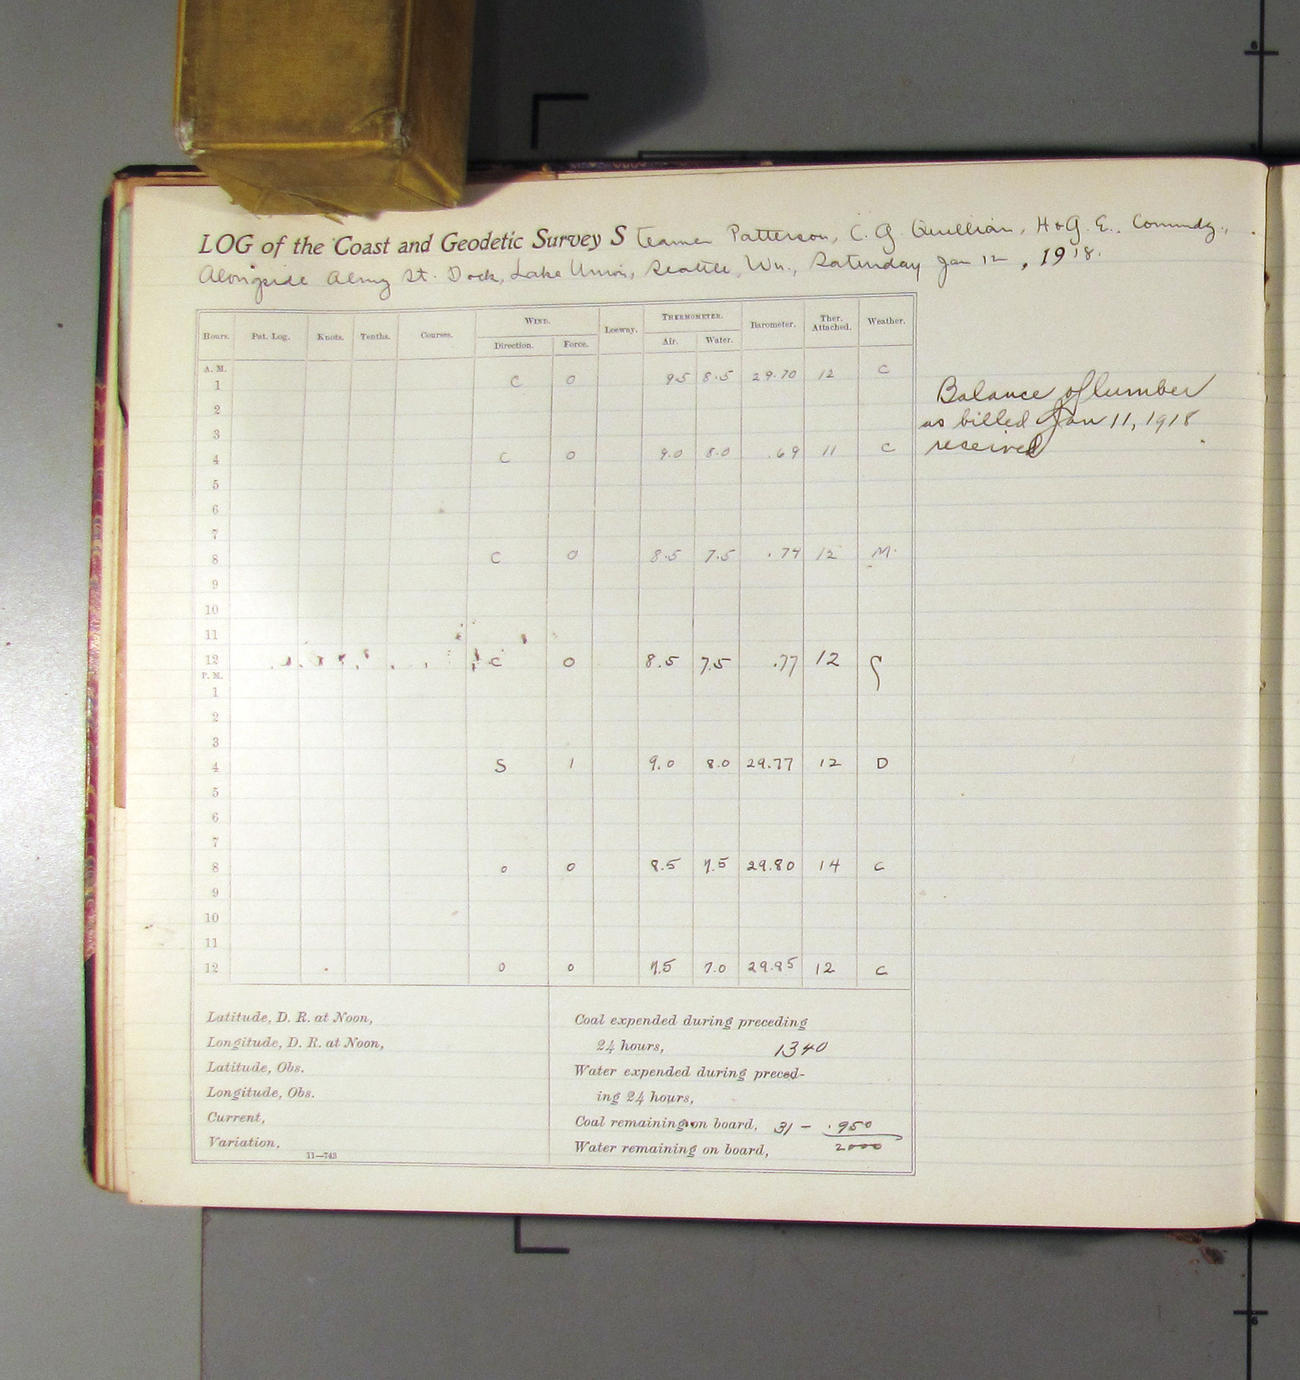 LOG of the Coast and Geodetic Survey Steamer Patterson, C. G. Quillian, H & G. E., Commdg.,
Alongside Army St. Dock, Lake Union, Seattle, Wn., Saturday Jan 12, 1918.
WIND. THERMOMETER.
Hours. Pat. Log. Knots. Tenths. Courses. Direction. Force. Leeway. Air. Water. Barometer. Ther. Attached. Weather.
A. M.
1 C 0 9.5 8.5 29.70 12 C
2
3
4 C 0 9.0 8.0 .69 11 C
5
6
7
8 C 0 8.5 7.5 .74 12 M.
9
10
11
12 C 0 8.5 7.5 .77 12
P. M.
1
2
3
4 S 1 9.0 8.0 29.77 12 D
5
6
7
8 0 0 8.5 7.5 29.80 14 C
9
10
11
12 0 0 7.5 7.0 29.85 12 C
Balance of lumber
as billed Jan 11, 1918
received
Latitude, D. R. at Noon,
Longitude, D. R. at Noon,
Latitude, Obs.
Longitude, Obs.
Current,
Variation,
11—743
Coal expended during preceding
24 hours, 1340
Water expended during preced-
ing 24 hours,
Coal remaining on board, 31 - .950
2000
Water remaining on board,